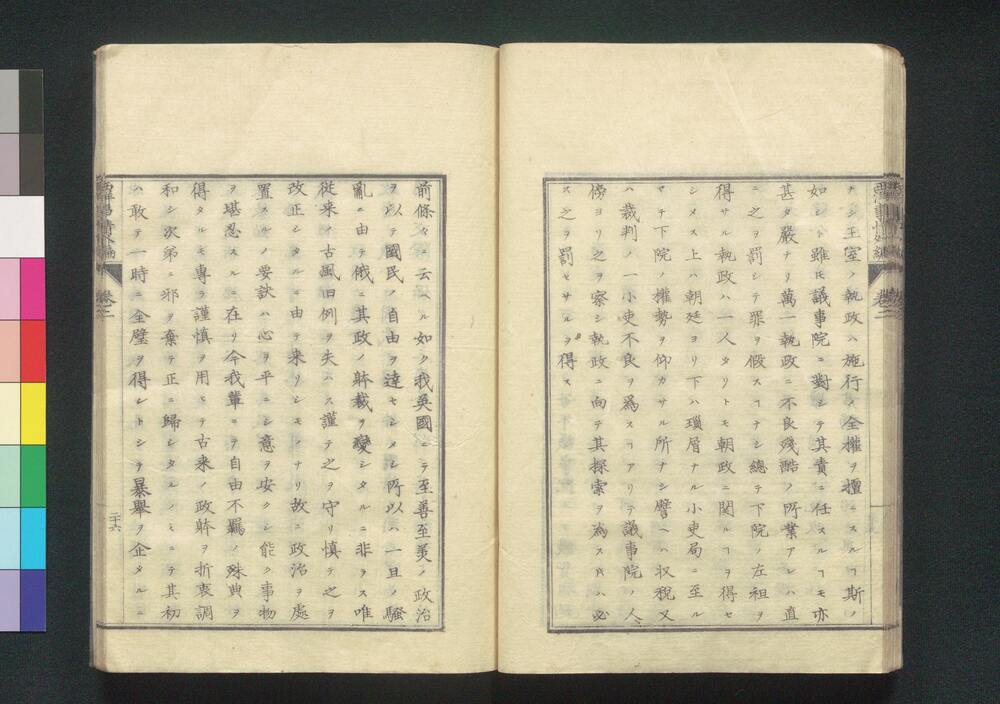 ナシ王室ノ執政ハ施行ノ全權ヲ擅ニスルヿ斯ノ
如シト雖𪜈議事院ニ對シテ其責ニ任スルヿモ亦
甚タ嚴ナリ萬一執政ニ不良殘酷ノ所業アレハ直
ニ之ヲ罰シテ罪ヲ假スヿナシ總テ下院ノ左袒ヲ
得サル執政ハ一人タリトモ朝政ニ関ルヿヲ得セ
シメス上ハ朝廷ヨリ下ハ瑣屑ナル小吏局ニ至ル
マテ下院ノ權勢ヲ仰カサル所ナシ譬ヘハ収税又
ハ裁判ノ一小吏不良ヲ爲スヿアリテ議事院ノ人
傍ヨリ之ヲ察シ執政ニ向テ其探索ヲ為ス𪜈ハ必
ス之ヲ罰セサルヲ得ス
前條々ニ云ヘル如ク我英國ニテ至善至美ノ政治
ヲ以テ國民ノ自由ヲ達セシメシ所以ハ一旦ノ騷
亂ニ由テ俄ニ其政ノ躰裁ヲ變シタルニ非ラス唯
従来ノ古風旧例ヲ失ハス謹テ之ヲ守リ慎テ之ヲ
改正シタルニ由テ来リシモノナリ故ニ政治ヲ處
置スルノ要訣ハ心ヲ平ニシ意ヲ安クシ能ク事物
ヲ堪忍スルニ在リ今我輩ニテ自由不羈ノ殊典ヲ
得タルモ專ラ謹慎ヲ用ヒテ古来ノ政躰ヲ折衷調
和シ次第ニ邪ヲ棄テ正ニ歸シタルノミニテ其初
ハ敢テ一時ニ全璧ヲ得ントシテ暴舉ヲ企タルニ
二十六
卷之二